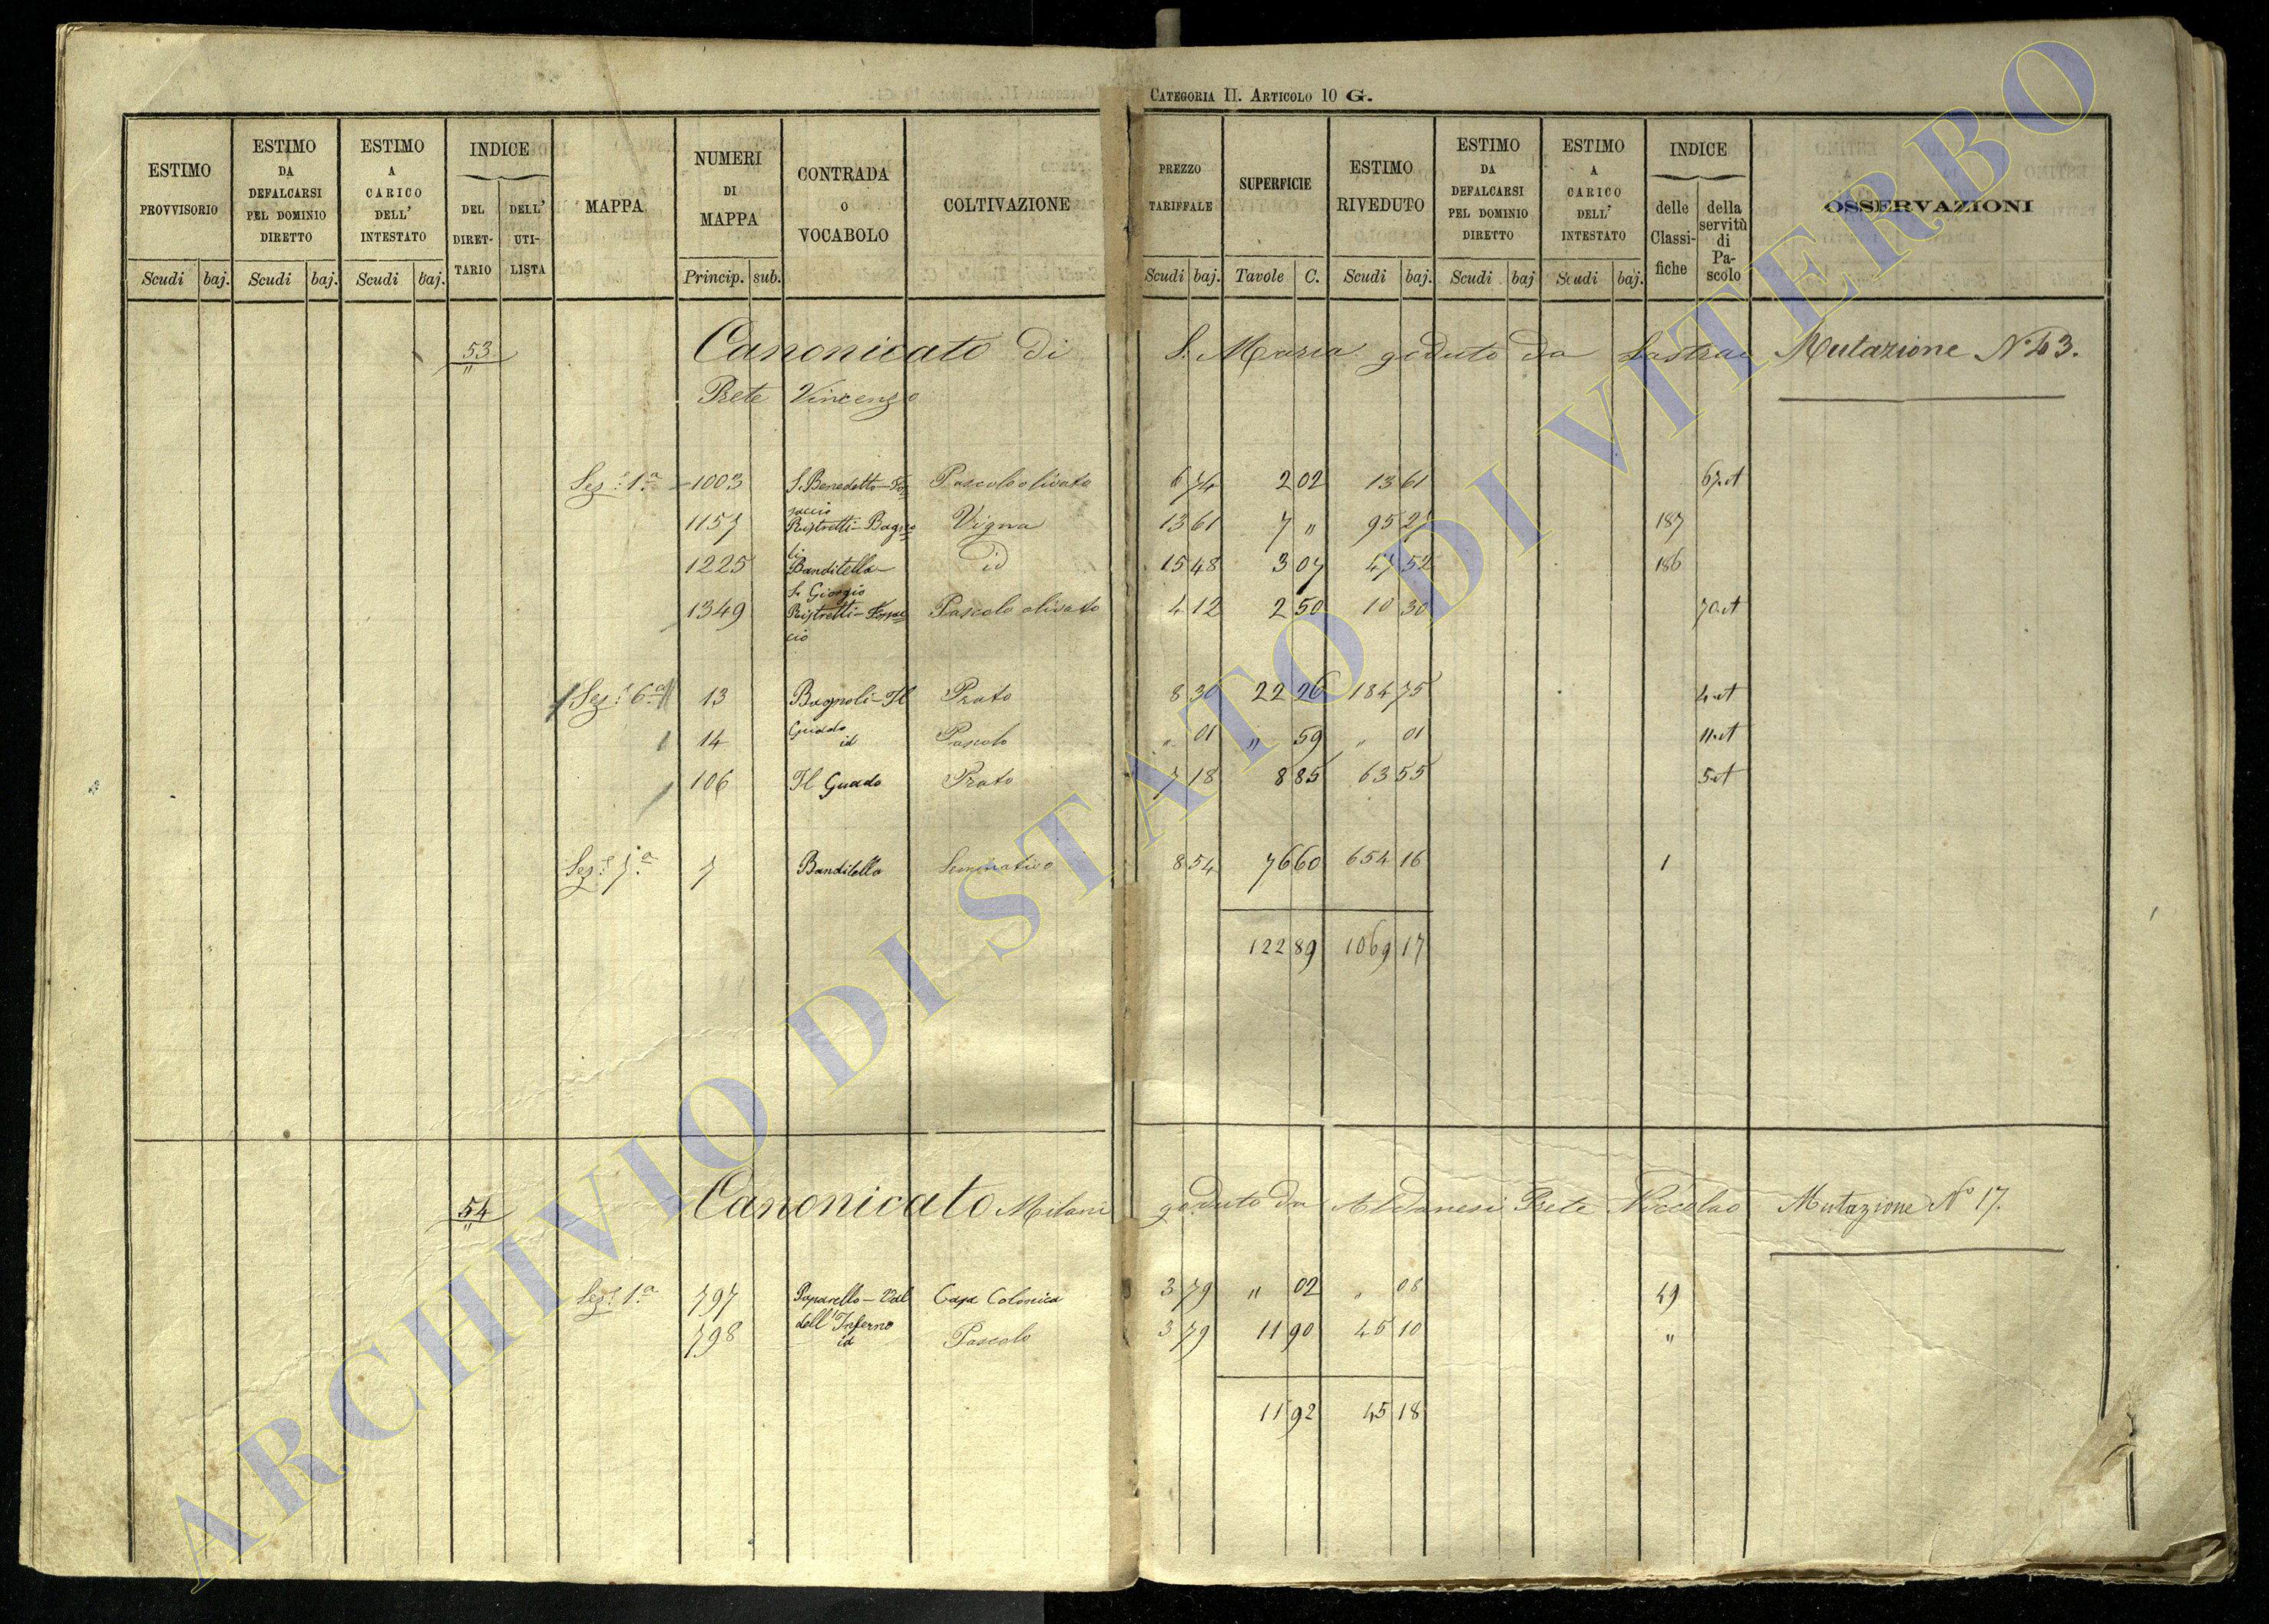 CATEGORIA II. ARTICOLO 10 G.
ESTIMO PROVVISORIO | ESTIMO DA DEFALCARSI PEL DOMINIO DIRETTO | ESTIMO A CARICO DELL' INTESTATO | INDICE DEL DIRETTARIO | DELL' UTILISTA | MAPPA | NUMERI DI MAPPA | CONTRADA O VOCABOLO | COLTIVAZIONE | PREZZO TARIFFALE | SUPERFICIE | ESTIMO RIVEDUTO | ESTIMO DA DEFALCARSI PEL DOMINIO DIRETTO | ESTIMO A CARICO DELL' INTESTATO | INDICE delle Classifiche | della servitù di Pascolo | OSSERVAZIONI
Scudi | baj. | Scudi | baj. | Scudi | baj. | Princip. | sub. | Scudi | baj. | Tavole | C. | Scudi | baj. | Scudi | baj | Scudi | baj.
53 " Canonicato di S. Maria goduto da Mutazione N.
Prete Vincenzo
Sez.e 1.a 1003 S. Benedetto Pascolo olivato 6 74 2 02 13 61
1157 Ristretti-Bagno= Vigna 13 61 7 " 95 27 187
li
1225 Banditella id 15 48 3 07 47 52 186
S. Giorgio
1349 Ristretti- Pascolo olivato 4 12 2 50 10 30
cio
Sez.e 6.a 13 Bagnoli-Il Prato 8 30 22 26 184 75
Guado
14 id Pascolo " 01 " 59 " 01
106 Il Guado Prato 7 18 8 85 63 55
Sez.e 7.a 7 Banditella Seminativo 8 54 76 60 654 16 1
122 89 1069 17
54 " Canonicato Milani goduto da Aldanesi Prete Niccolao Mutazione N° 17.
Sez.e 1.a 797 Paparello-Val Casa Colonica 3 79 " 02 " 08 49
dell'Inferno
798 id Pascolo 3 79 11 90 45 10 "
11 92 45 18
ARCHIVIO DI STATO DI VITERBO